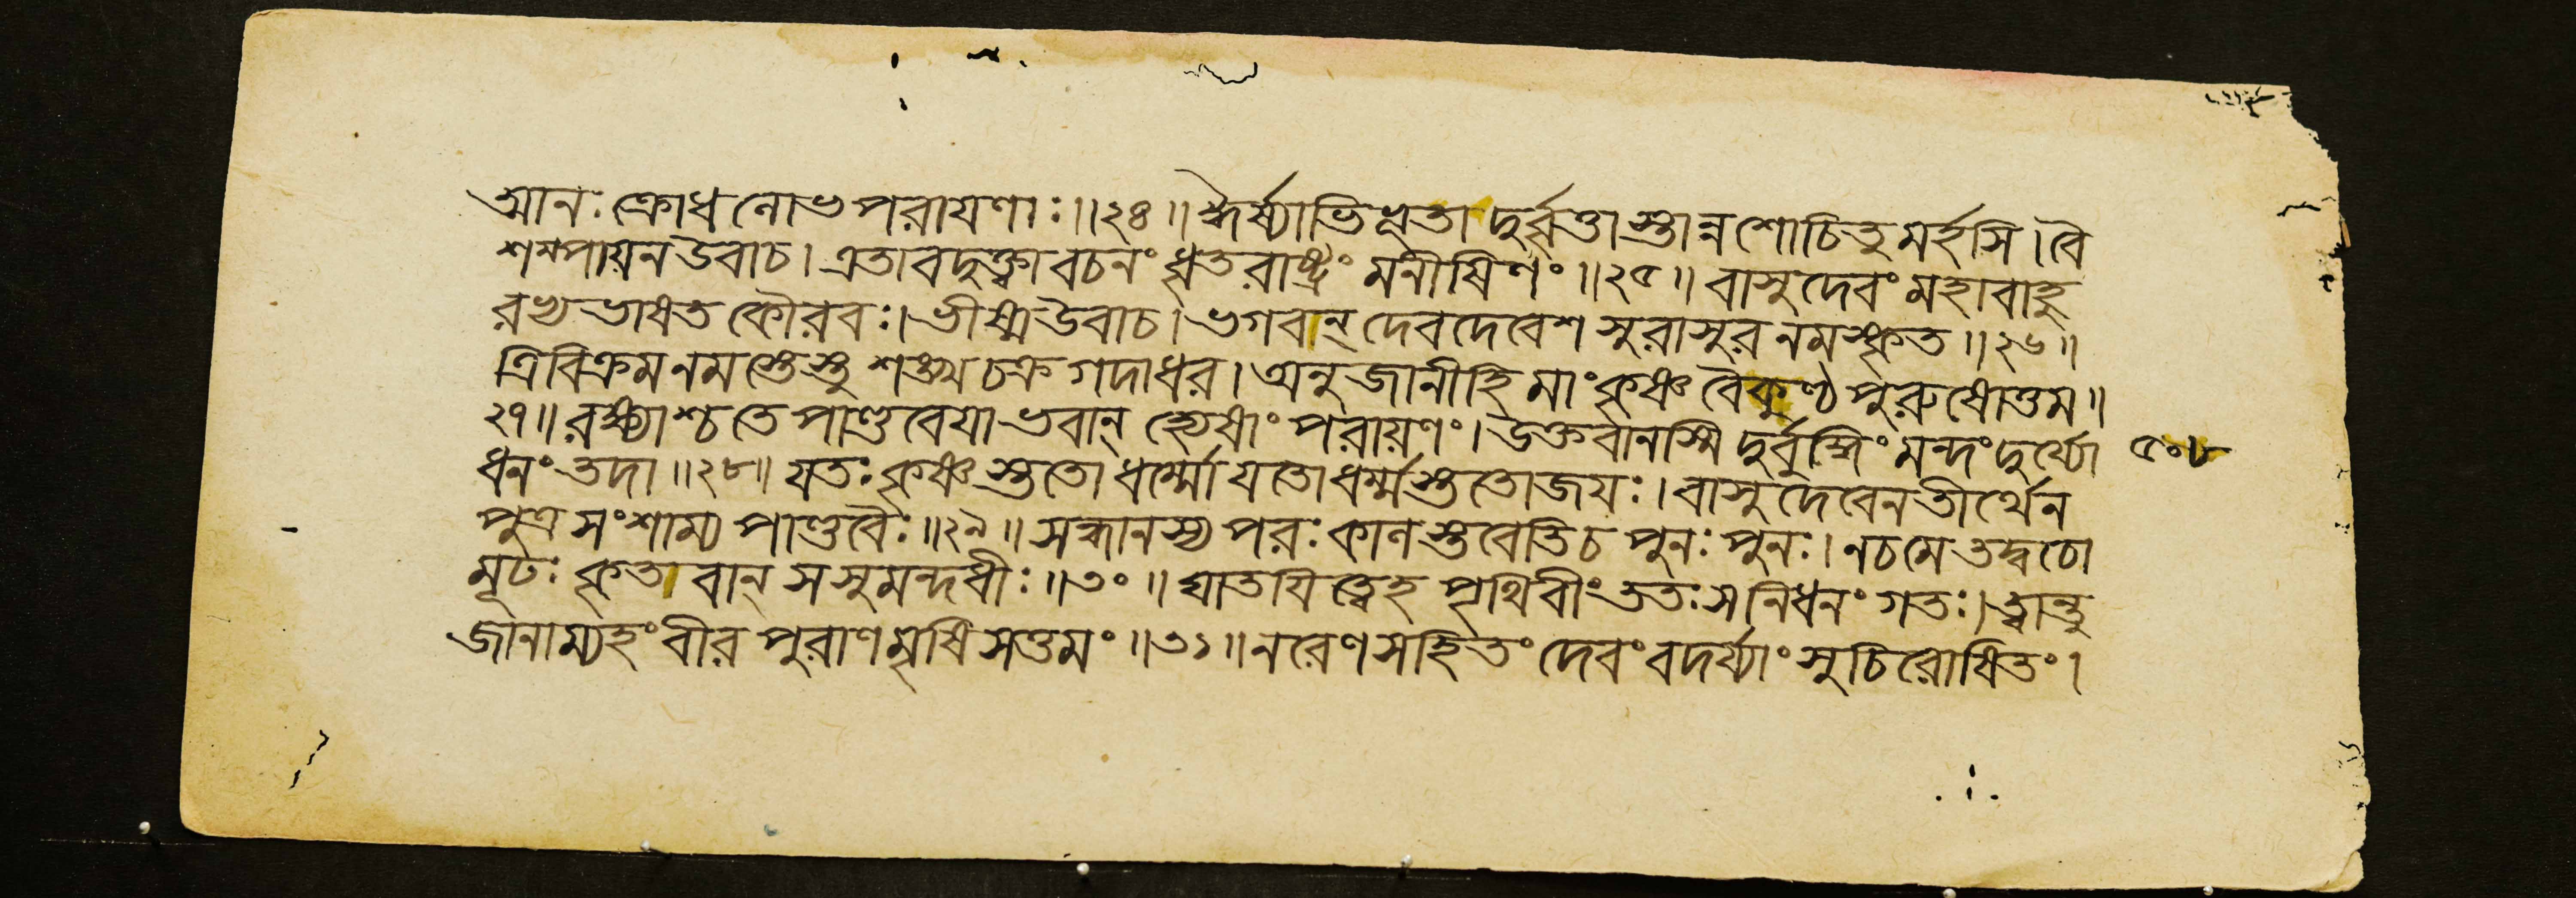 আনঃ ক্রোধলোভপরায়ণাঃ॥২৪॥ ঈর্ষ্যাভিভূতা দুর্ব্বৃত্তাস্তান্নশোচিতুমর্হসি। বৈ
শম্পায়ন উবাচ। এতাবদুক্ত্বা বচনং ধৃতরাষ্ট্রং মনীষিণং॥২৫॥ বাসুদেবং মহাবাহু
রভ্যভাষত কৌরবঃ। ভীষ্ম উবাচ। ভগবান্ দেবদেবেশ সুরাসুরনমস্কৃত॥২৬॥
ত্রিবিক্রম নমস্তেস্তু শঙ্খচক্রগদাধর। অনুজানীহি মাং কৃষ্ণ বৈকুণ্ঠ পুরুষোত্তম॥
২৭॥ রক্ষ্যাশ্চ তে পাণ্ডবেয়া ভবান্ হ্যেষাং পরায়ণং। উক্তবানস্মি দুর্বুদ্ধিং মন্দং দুর্য্যো
ধনং তদা॥২৮॥ যতঃ কৃষ্ণস্ততো ধর্ম্মো যতো ধর্ম্মস্ততো জয়ঃ। বাসুদেবেন তীর্থেন
পুত্র সংশাম্য পাণ্ডবৈঃ॥২৯॥ সন্ধানস্য পরঃ কালস্তবেতি চ পুনঃ পুনঃ। ন চ মে তদ্বচো
মূঢঃ কৃতাবান্ স সুমন্দধীঃ॥৩০॥ ঘাতয়িত্বেহ পৃথিবীং ততঃ স নিধনং গতঃ। ত্বান্তু
জানাম্যহং বীর পুরাণমৃষিসত্তমং॥৩১॥ নরেণ সহিতং দেবং বদর্য্যাং সুচিরোষিতং।